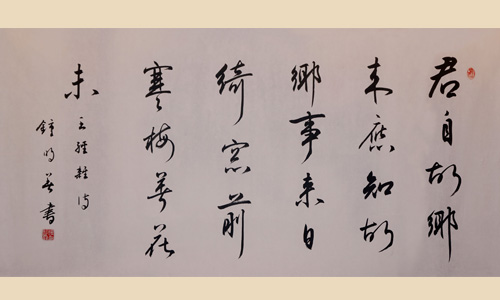 君自故鄉
来應知故
鄉事来日
綺窓前
寒梅著花
未
王維雜詩
鍾明善書